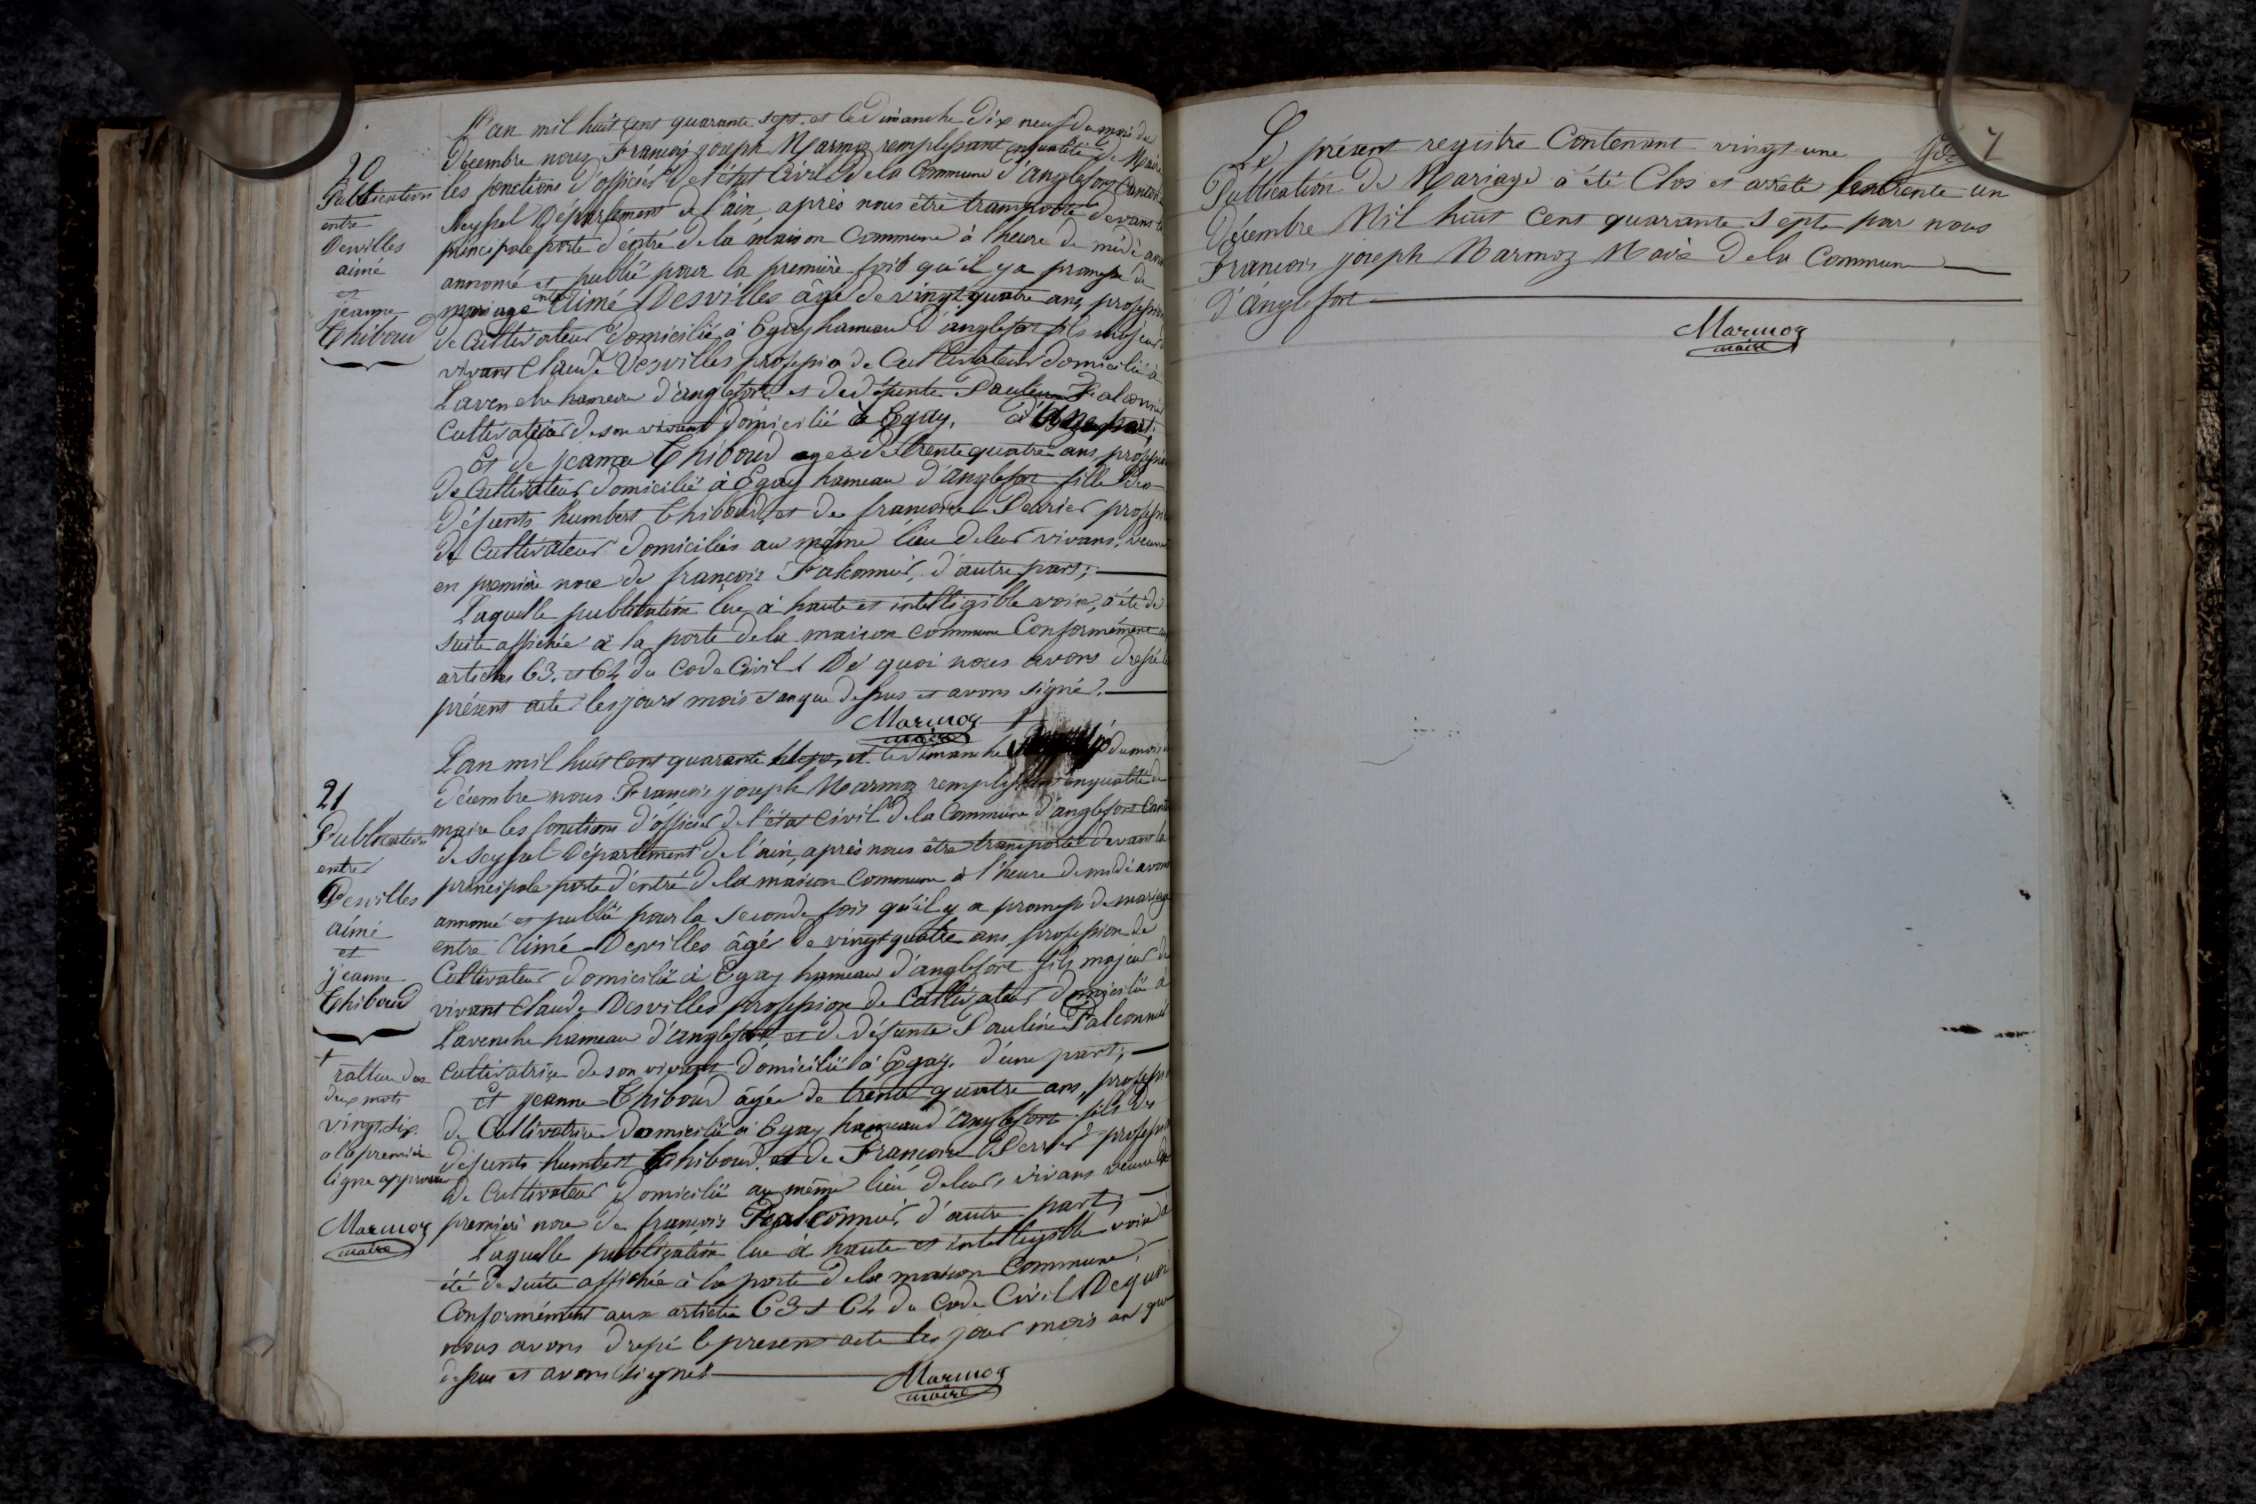 20
Publication
entre
Desvilles
aimé
et
jeanne
Thiboud
L'an mil huit cent quarante sept, et le dimanche dix neuf du mois de
décembre nous François joseph Marmoz remplissant en qualité de Maire
les fonctions d'officier de l'état Civil de la Commune d'anglefort Canton
Seyssel Département de l'ain, après nous être transporté devant la
principale porte d'entré de la maison Commune à l'heure de midi avons
annoncé et publié pour la première fois qu'il y a promesse de
mariage entre Aimé Desvilles âgé de vingt quatre ans, profession
de Cultivateur domicilié à Egay hameau d'anglefort fils majeur
vivant Claude Desvilles profession de Cultivateur domicilié à
Lavenche hameau d'anglefort et de défunte Pauline Falconnier
Cultivateur de son vivant domicilié à Egay, d'une part;
Et de jeanne Thiboud agée de trente quatre ans, profession
de Cultivateur domicilié à Egay hameau d'anglefort fille de
défunts humbert Thiboud, et de françoise Perrier profession
de Cultivateur domiciliés au même lieu de leur vivans, veuve
en première noce de françois Falconnier, d'autre part;
Laquelle publication lue à haute et intelligible voix, a été de
suite affichée à la porte de la maison commune Conformément aux
articles 63. et 64 du Code Civil. De quoi nous avons dressé le
présent acte les jours mois et an que dessus et avons signé.
Marmoz
maire
21
Publication
entre
Desvilles
aimé
et
jeanne
Thiboud
L'an mil huit cent quarante sept, et le dimanche du mois
décembre nous François joseph Marmoz remplissant en qualité de
maire les fonctions d'officier de l'état Civil de la Commune d'anglefort Canton
de Seyssel Département de l'ain, après nous être transporté devant la
principale porte d'entré de la maison Commune à l'heure de midi avons
annoncé et publié pour la seconde fois qu'il y a promesse de mariage
entre Aimé Desvilles âgé de vingt quatre ans, profession de
Cultivateur domicilié à Egay hameau d'anglefort fils majeur de
vivant Claude Desvilles profession de Cultivateur domicilié à
Lavenche hameau d'anglefort, et de défunte Pauline Falconnier
Cultivatrice de son vivant domicilié à Egay, d'une part;
Et jeanne Thiboud âgée de trente quatre ans, profession
de Cultivatrice domicilié à Egay hameau d'anglefort fille de
défunts humbert Thiboud, et de Françoise Perrier profession
de Cultivateur domicilié au même lieu de leurs vivans veuve en
première noce de françois Falconnier, d'autre part;
Laquelle publication lue à haute et intelligible voix a
été de suite affichée à la porte de la maison Commune,
Conformément aux articles 63 et 64 du Code Civil De quoi
nous avons dressé le présent acte les jour mois an que
dessus et avons signés
Marmoz
maire
rature des
deux mots
vingt six
a la première
ligne approuvée
Marmoz
maire
7
Le présent registre Contenant vingt une
Publication de Mariage a été Clos et arrêté le trente un
décembre Mil huit cent quarante sept par nous
François joseph Marmoz Maire de la Commune
d'anglefort
Marmoz
maire